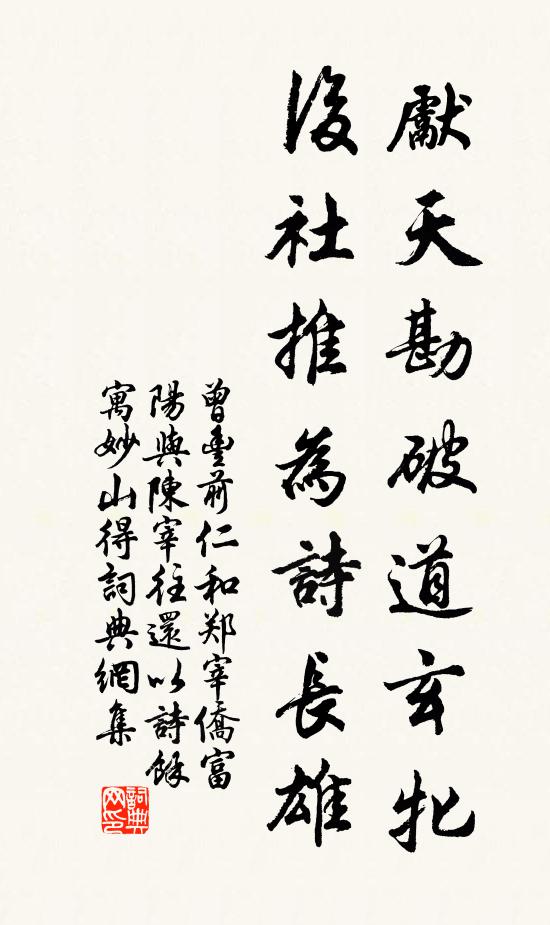 獻天勘破道玄牝
後社推為詩長雄
曾豐前仁和郑宰僑富
陽與陳宰往還以詩餘
寓妙山得詞典網集
詞典网印